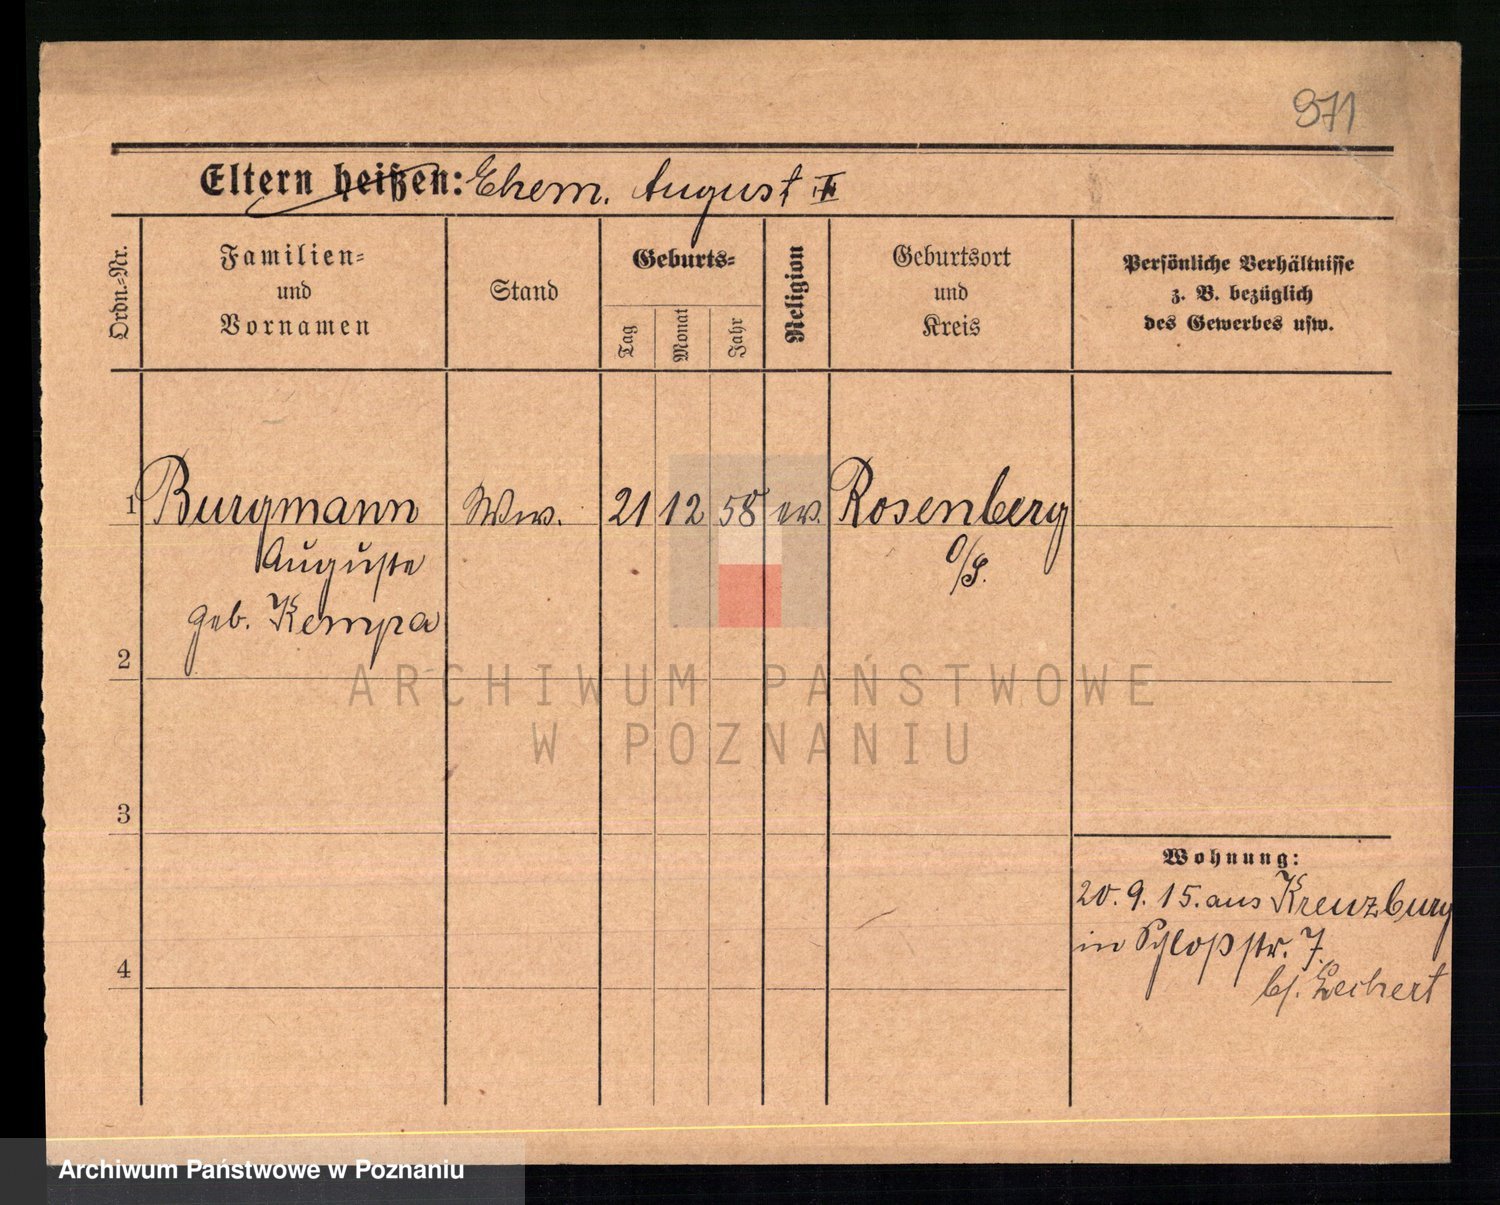 971
Eltern heißen: Ehem. August ✝
Ordn.-Nr.
Familien-
und
Vornamen
Stand
Geburts-
Tag
Monat
Jahr
Religion
Geburtsort
und
Kreis
Persönliche Verhältnisse
z. B. bezüglich
des Gewerbes usw.
1 Burgmann Ww. 21 12 58 ev. Rosenberg
Auguste O/S.
geb. Kempa
2
3
4
Wohnung:
20. 9. 15. aus Kreuzburg
in Schloßstr. 7.
bj. Lechert
ARCHIWUM PAŃSTWOWE
W POZNANIU
Archiwum Państwowe w Poznaniu